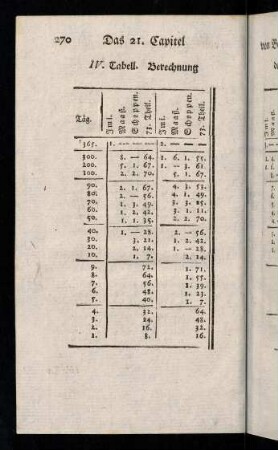 270 Das 21. Capitel
IV. Tabell. Berechnung
Täg. Imi. Maaß. Schoppen. 73. Theil. Imi. Maaß. Schoppen. 73. Theil.
365. 1. — — — 2. — — —
300. 8. — 64. 1. 6. 1. 55.
200. 5. 1. 67. 1. — 3. 61.
100. 2. 2. 70. 5. 1. 67.
90. 2. 1. 4. 3. 53.
80. 2. — 56. 4. 1.
70. 1. 3. 49. 3. 3. 25.
60. 1. 2. 42. 3. 1. 11.
50. 1. 1. 35. 2. 2. 70.
40. 1. — 28. 2. — 56.
30. 3. 21. 1. 2. 42.
20. 2. 14. 1. — 28.
10. 1. 7. 2. 14.
9. 72. 1. 71.
8. 64. 1. 55.
7. 56. 1. 39.
6. 48. 1. 23.
5. 40. 1. 7.
4. 32. 64.
3. 24. 48.
2. 16. 32.
1. 8. 16.